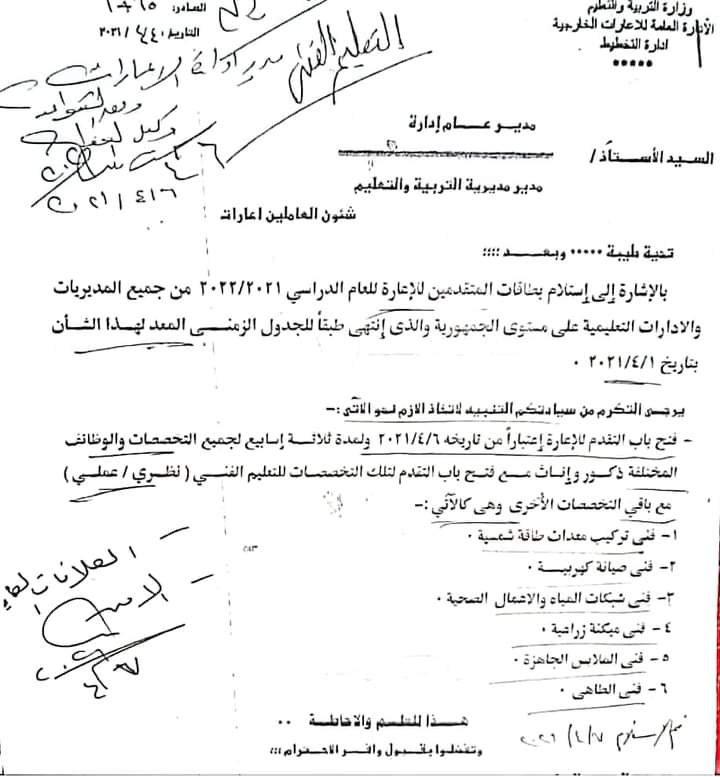 وزارة التربية والتعليم
الادارة العامة للاعارات الخارجية
ادارة التخطيط
*****
الصادر:
التاريخ: ٤/٤/ ٢٠٢١
التعليم الفنى
مدير ادارة الإعارات
٢٠٢١/٤/٦
السيد الأستاذ /
مديـر عــام إدارة
مدير مديرية التربية والتعليم
شئون العاملين اعارات
تحية طيبة ***** وبعــد ؛؛؛؛
بالإشارة إلى إستلام بطاقات المتقدمين للإعارة للعام الدراسي ٢٠٢٢/٢٠٢١ من جميع المديريات
والادارات التعليمية على مستوى الجمهورية والذى إنتهى طبقاً للجدول الزمنـى المعد لهـذا الشـأن
بتاريخ ٢٠٢١/٤/١ ٠
يرجـى التكرم من سيادتكم التنبيه لاتخاذ الازم نحو الآتى :-
- فتح باب التقدم للإعارة إعتباراً من تاريخه ٢٠٢١/٤/٦ ولمدة ثلاثـة إسابيع لجميع التخصصات والوظائف
المختلفة ذكـور وإنـاث مــع فتـح باب التقدم لتلك التخصصات للتعليم الفنـي ( نظـري / عملـي )
مع باقي التخصصات الأخرى وهى كالآتي :-
١- فنى تركيب معدات طاقة شمسية ٠
٢- فنى صيانة كهربيـة ٠
٣- فنى شبكات المياه والاعمال الصحية ٠
٤- فنى ميكنة زراعية ٠
٥- فنى الملابس الجاهزة ٠
٦- فنى الطاهى ٠
العلاقات
هـذا للتعلـم والاحاطـة ٠٠
وتفضلوا بقبـول وافـر الاحتـرام ؛؛؛
٢٠٢١/٤/٧